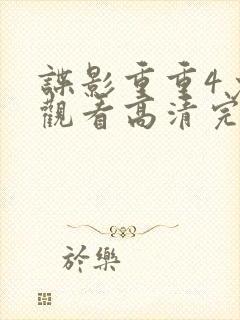 諜影重重4
觀看高清完
於樂